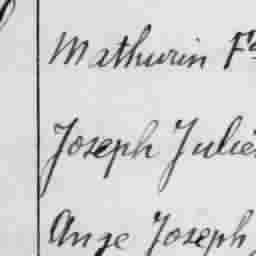 Mathurin Fs
Joseph Julie
Ange Joseph